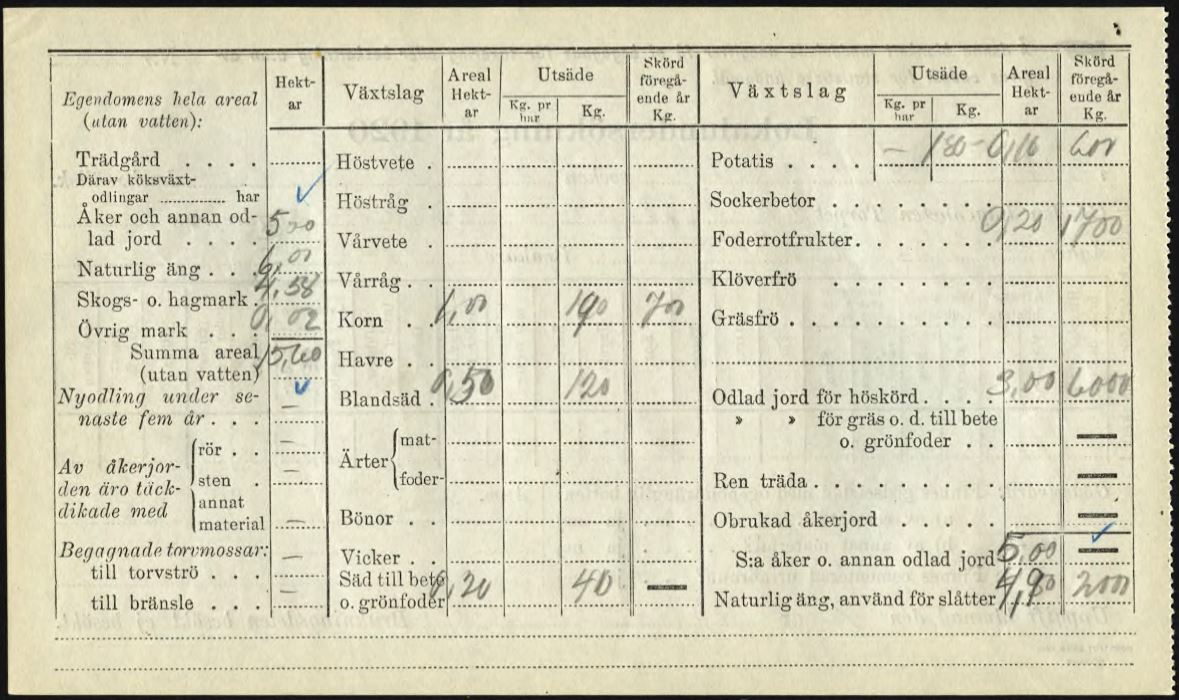 Egendomens hela areal
(utan vatten):
Hekt-
ar
Trädgård . . . .
Därav köksväxt-
odlingar ............ har
Åker och annan od-
lad jord . . . . 5,00
Naturlig äng . . . 6,00
Skogs- o. hagmark . 4,58
Övrig mark . . . 0,02
Summa areal 15,60
(utan vatten)
Nyodling under se-
naste fem år . . . —
Av åkerjor-
den äro täck-
dikade med
rör . . —
sten . —
annat
material —
Begagnade torvmossar:
till torvströ . . . —
till bränsle . . . —
Växtslag
Areal
Hekt-
ar
Utsäde
Kg. pr
har
Kg.
Skörd
föregå-
ende år
Kg.
Höstvete .
Höstråg .
Vårvete .
Vårråg . .
Korn . . 1,00 190 700
Havre . .
Blandsäd . 0,50 120
Ärter
mat-
foder-
Bönor . .
Vicker . .
Säd till bete
o. grönfoder 0,20 40 —
Växtslag
Utsäde
Kg. pr
har
Kg.
Areal
Hekt-
ar
Skörd
föregå-
ende år
Kg.
Potatis . . . . — 180 - 0,10 600
Sockerbetor . . . . . .
Foderrotfrukter . . . . . 0,20 1700
Klöverfrö . . . . . .
Gräsfrö . . . . . . .
Odlad jord för höskörd . . . 3,00 6000
» » för gräs o. d. till bete
o. grönfoder . . —
Ren träda . . . . . . —
Obrukad åkerjord . . . . —
S:a åker o. annan odlad jord 5,00 —
Naturlig äng, använd för slåtter 2000